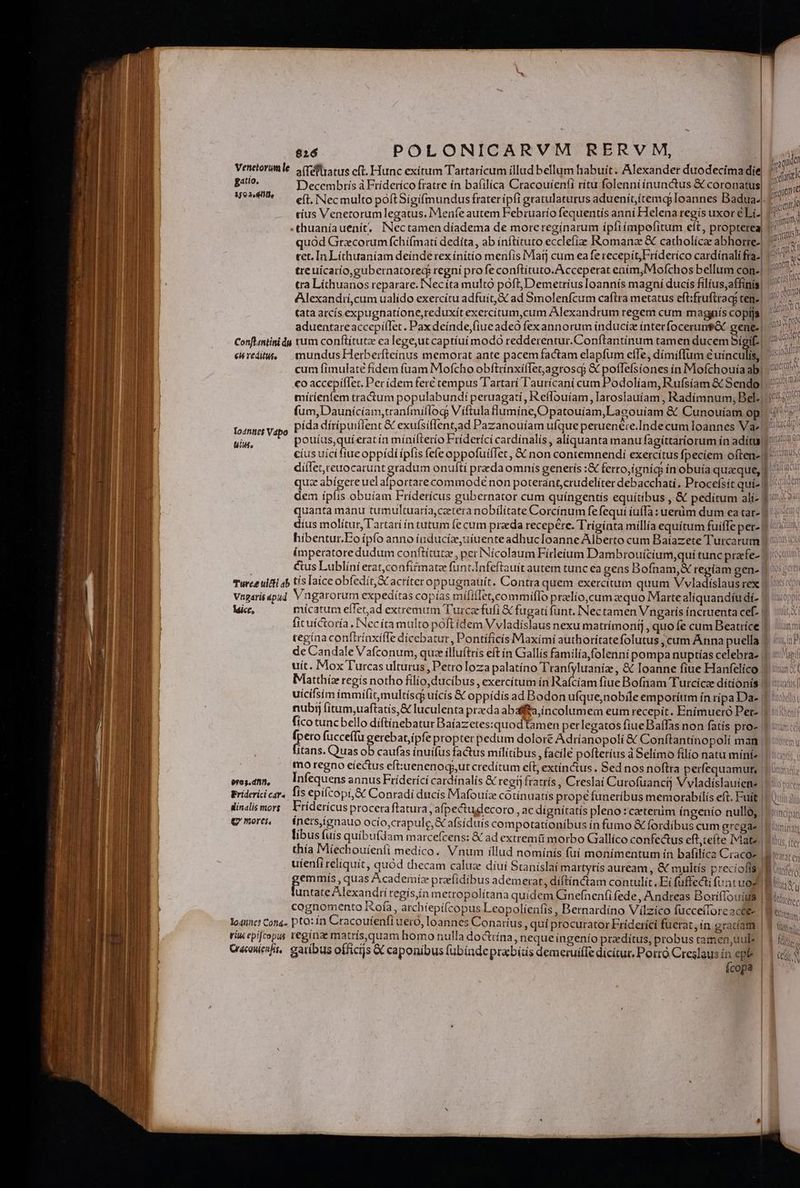 826 POLONICARVM RERVM,
Venetorum le gatio.
aſſectuatus eſt. Hunc exitum Tartaricum illud bellum habuit. Alexander duodecima die
Decembris à Friderico fratre in baſilica Cracouienſi ritu ſolenni inunctus & coronatus
eſt. Nec multo pòſt Sigiſmundus frater ipſi gratulaturus aduenit, itemq́; Ioannes Badua-
rius Venetorum legatus. Menſe autem Februario ſequentis anni Helena regis uxor è Li-
thuania uenit. Nec tamen diadema de more reginarum ipſi impoſitum eſt, propterea
quòd Græcorum ſchiſmati dedita, ab inſtituto eccleſiæ Romanæ & catholicæ abhorre-
ret. In Lithuaniam deinde rex initio menſis Maij cum ea ſe recepit, Friderico cardinali fra-
tre uicario, gubernatoreq́; regni pro ſe conſtituto. Acceperat enim, Moſchos bellum con-
tra Lithuanos reparare. Nec ita multò pòſt, Demetrius Ioannis magni ducis filius, affinis
Alexandri, cum ualido exercitu adfuit, & ad Smolenſcum caſtra metatus eſt: fruſtraq́; ten-
tata arcis expugnatione, reduxit exercitum, cum Alexandrum regem cum magnis copijs
aduentare accepiſſet. Pax deinde, ſiue adeò ſex annorum induciæ interfocerunt & gene-
Conſtantini du
cis reditus.
rum conſtitutæ ea lege, ut captiui modò redderentur. Conſtantinum tamen ducem Sigiſ-
mundus Herberſteinus memorat ante pacem factam elapſum eſſe, dimiſſum è uinculis,
cum ſimulatè fidem ſuam Moſcho obſtrinxiſſet, agrosq́; & poſſeſsiones in Moſchouia ab
eo accepiſſet. Per idem ferè tempus Tartari Tauricani cum Podoliam, Ruſsiam & Sendo
mirienſem tractum populabundi peruagati, Reſſouiam, Iaroslauiam, Radimnum, Bel-
ſum, Dauniciam, tranſmiſſoq́; Viſtula flumine, Opatouiam, Lagouiam & Cunouiam op
pida diripuiſſent & exuſsiſſent, ad Pazanouiam uſque peruenêre. Inde cum Ioannes Va-
Ioannes Vapo
uius.
pouius, qui erat in miniſterio Friderici cardinalis, aliquanta manu ſagittariorum in aditu
eius uici ſiue oppidi ipſis ſeſe oppoſuiſſet, & non contemnendi exercitus ſpeciem oſten-
diſſet, reuocarunt gradum onuſti præda omnis generis: & ferro, igniq́; in obuia quæque,
quæ abigere uel aſportare commodè non poterant, crudeliter debacchati. Proceſsit qui-
dem ipſis obuiam Fridericus gubernator cum quingentis equitibus, & peditum ali-
quanta manu tumultuaria, cætera nobilitate Corcinum ſe ſequi iuſſa: uerùm dum ea tar-
dius molitur, Tartari in tutum ſe cum præda recepêre. Triginta millia equitum fuiſſe per-
hibentur. Eo ipſo anno induciæ, uiuente adhuc Ioanne Alberto cum Baiazete Turcarum
imperatore dudum conſtitutæ, per Nicolaum Firleium Dambrouicium, qui tunc præfe-
ctus Lublini erat, confirmatæ ſunt. Infeſtauit autem tunc ea gens Boſnam, & regiam gen-
Turcæ uicti ab
Vngaris apud
Iaice.
tis Iaice obſedit, & acriter oppugnauit. Contra quem exercitum quum Vvladislaus rex
Vngarorum expeditas copias miſiſſet, commiſſo prælio, cum æquo Marte aliquandiu di-
micatum eſſet, ad extremum Turcæ fuſi & fugati ſunt. Nec tamen Vngaris incruenta ceſ-
ſit uictoria. Nec ita multo pòſt idem Vvladislaus nexu matrimonij, quo ſe cum Beatrice
regina conſtrinxiſſe dicebatur, Pontificis Maximi authoritate ſolutus, cum Anna puella
de Candale Vaſconum, quæ illuſtris eſt in Gallis familia, ſolenni pompa nuptias celebra-
uit. Mox Turcas ulturus, Petro loza palatino Tranſyluaniæ, & Ioanne ſiue Hanſelico
Matthiæ regis notho filio, ducibus, exercitum in Raſciam ſiue Boſnam Turcicæ ditionis
uiciſsim immiſit, multisq́; uicis & oppidis ad Bodon uſque, nobile emporium in ripa Da-
nubij ſitum, uaſtatis, & luculenta præda abacta, incolumem eum recepit. Enimuerò Per-
ſico tunc bello diſtinebatur Baiazetes: quod tamen per legatos ſiue Baſſas non ſatis pro-
ſpero ſucceſſu gerebat, ipſe propter pedum dolorè Adrianopoli & Conſtantinopoli man
ſitans. Quas ob cauſas inuiſus factus militibus, facilè poſterius à Selimo filio natu mini-
mo regno eiectus eſt: uenenoq́;, ut creditum eſt, extinctus. Sed nos noſtra perſequamur.
Friderici car-
dinalis mors
& mores.
Inſequens annus Friderici cardinalis & regij fratris, Creslai Curoſuancij Vvladislauien-
ſis epiſcopi, & Conradi ducis Maſouiæ cōtinuatis propè funeribus memorabilis eſt. Fuit
Fridericus procera ſtatura, aſpectu decoro, ac dignitatis pleno: cæterùm ingenio nullo,
iners, ignauo ocio, crapulę, & aſsiduis compotationibus in fumo & ſordibus cum grega-
libus ſuis quibuſdam marceſcens: & ad extremū morbo Gallico confectus eſt, teſte Mat-
thia Miechouienſi medico. Vnum illud nominis ſui monimentum in baſilica Craco-
uienſi reliquit, quòd thecam caluæ diui Stanislai martyris auream, & multis precioſis
gemmis, quas Academiæ præſidibus ademerat, diſtinctam contulit. Ei ſuffecti ſunt uo-
luntate Alexandri regis, in metropolitana quidem Gneſnenſi ſede, Andreas Boriſſouius
cognomento Roſa, archiepiſcopus Leopolienſis, Bernardino Vilzico ſucceſſore accep-
Ioannes Cona-
rius epiſcopus
Cracouienſis.
pto: in Cracouienſi uerò, Ioannes Conarius, qui procurator Friderici fuerat, in gratiam
reginæ matris, quam homo nulla doctrina, neque ingenio præditus, probus tamen, uul-
garibus officijs & caponibus ſubinde præbitis demeruiſſe dicitur. Porrò Creslaus in epi-
ſcopa